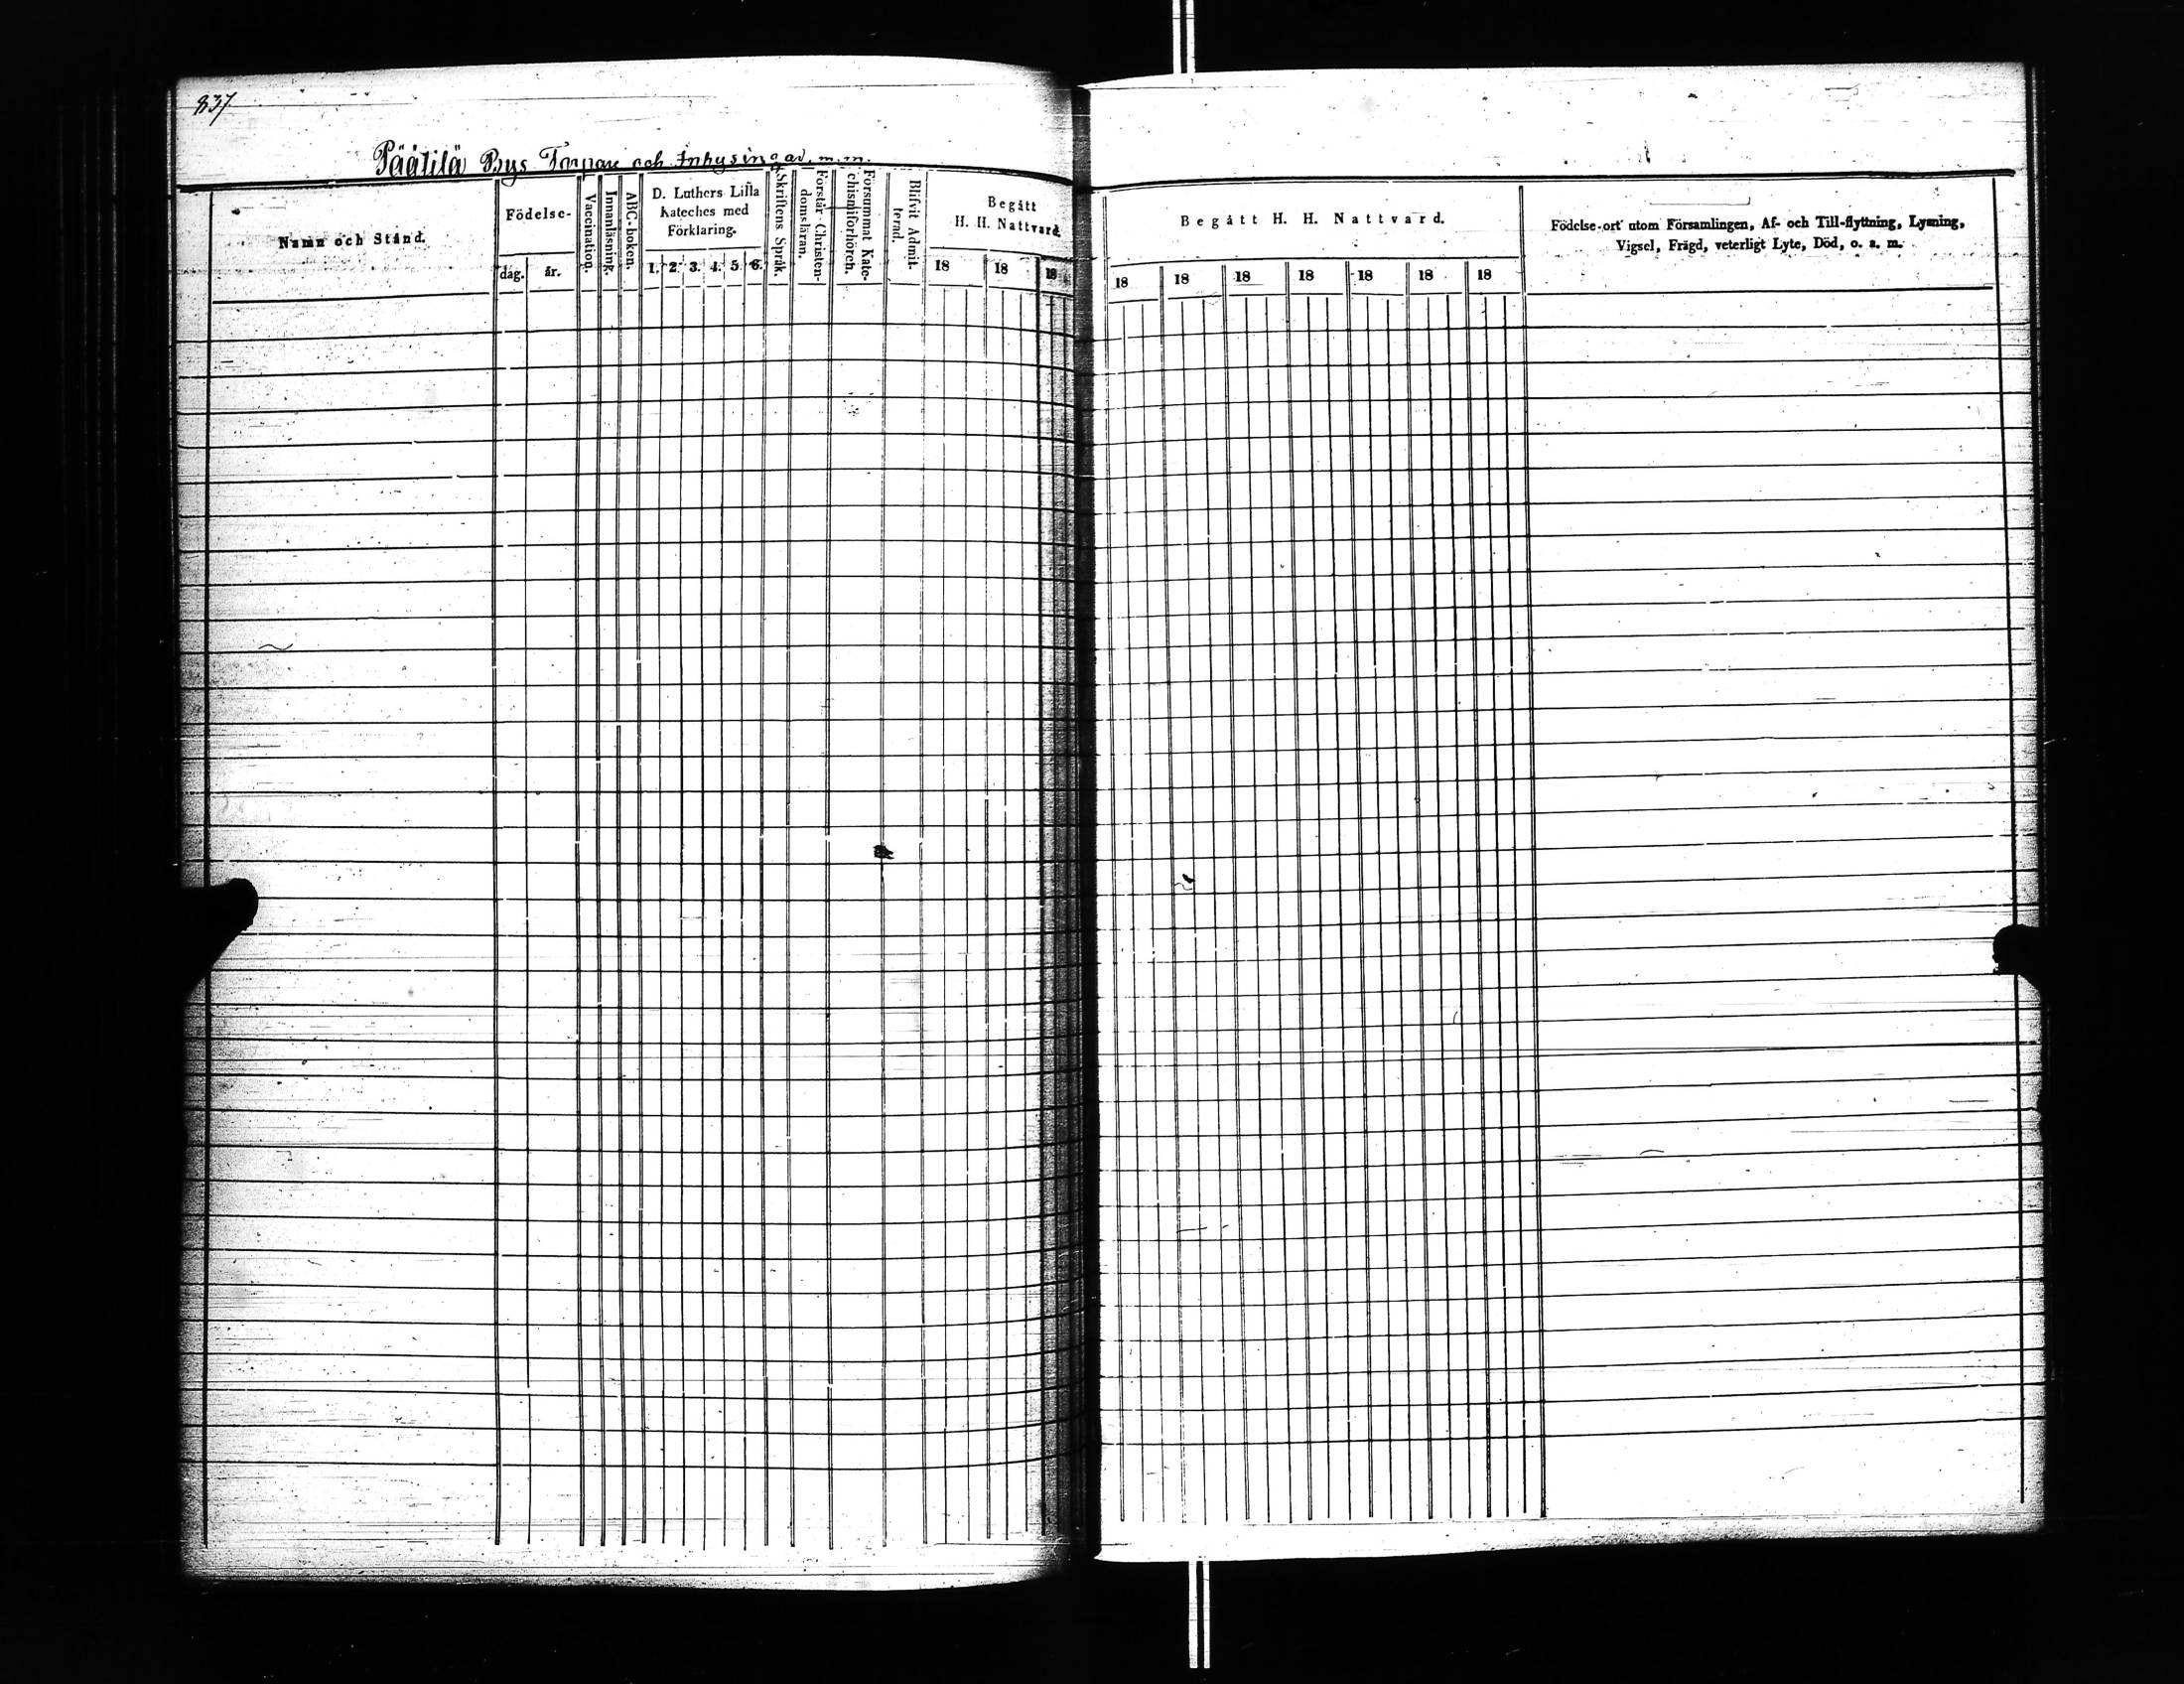 837
Päätilä Bys Torpare och Inhysingar, m.m.
Namn och Stånd.
Födelse-
dag. år.
Vaccination.
Innanläsning.
ABC-boken.
D. Luthers Lilla
Kateches med
Förklaring.
1. 2. 3. 4. 5 6.
Skriftens Språk.
Förstår Christen-
domsläran.
Försummat Kate-
chismiförhörch.
Blifvit Admit-
terad.
Begått
H. H. Nattvard.
18 18 18
Begått H. H. Nattvard.
18 18 18 18 18 18 18
Födelse-ort utom Församlingen, Af- och Till-flyttning, Lysning,
Vigsel, Frägd, veterligt Lyte, Död, o. s. m.